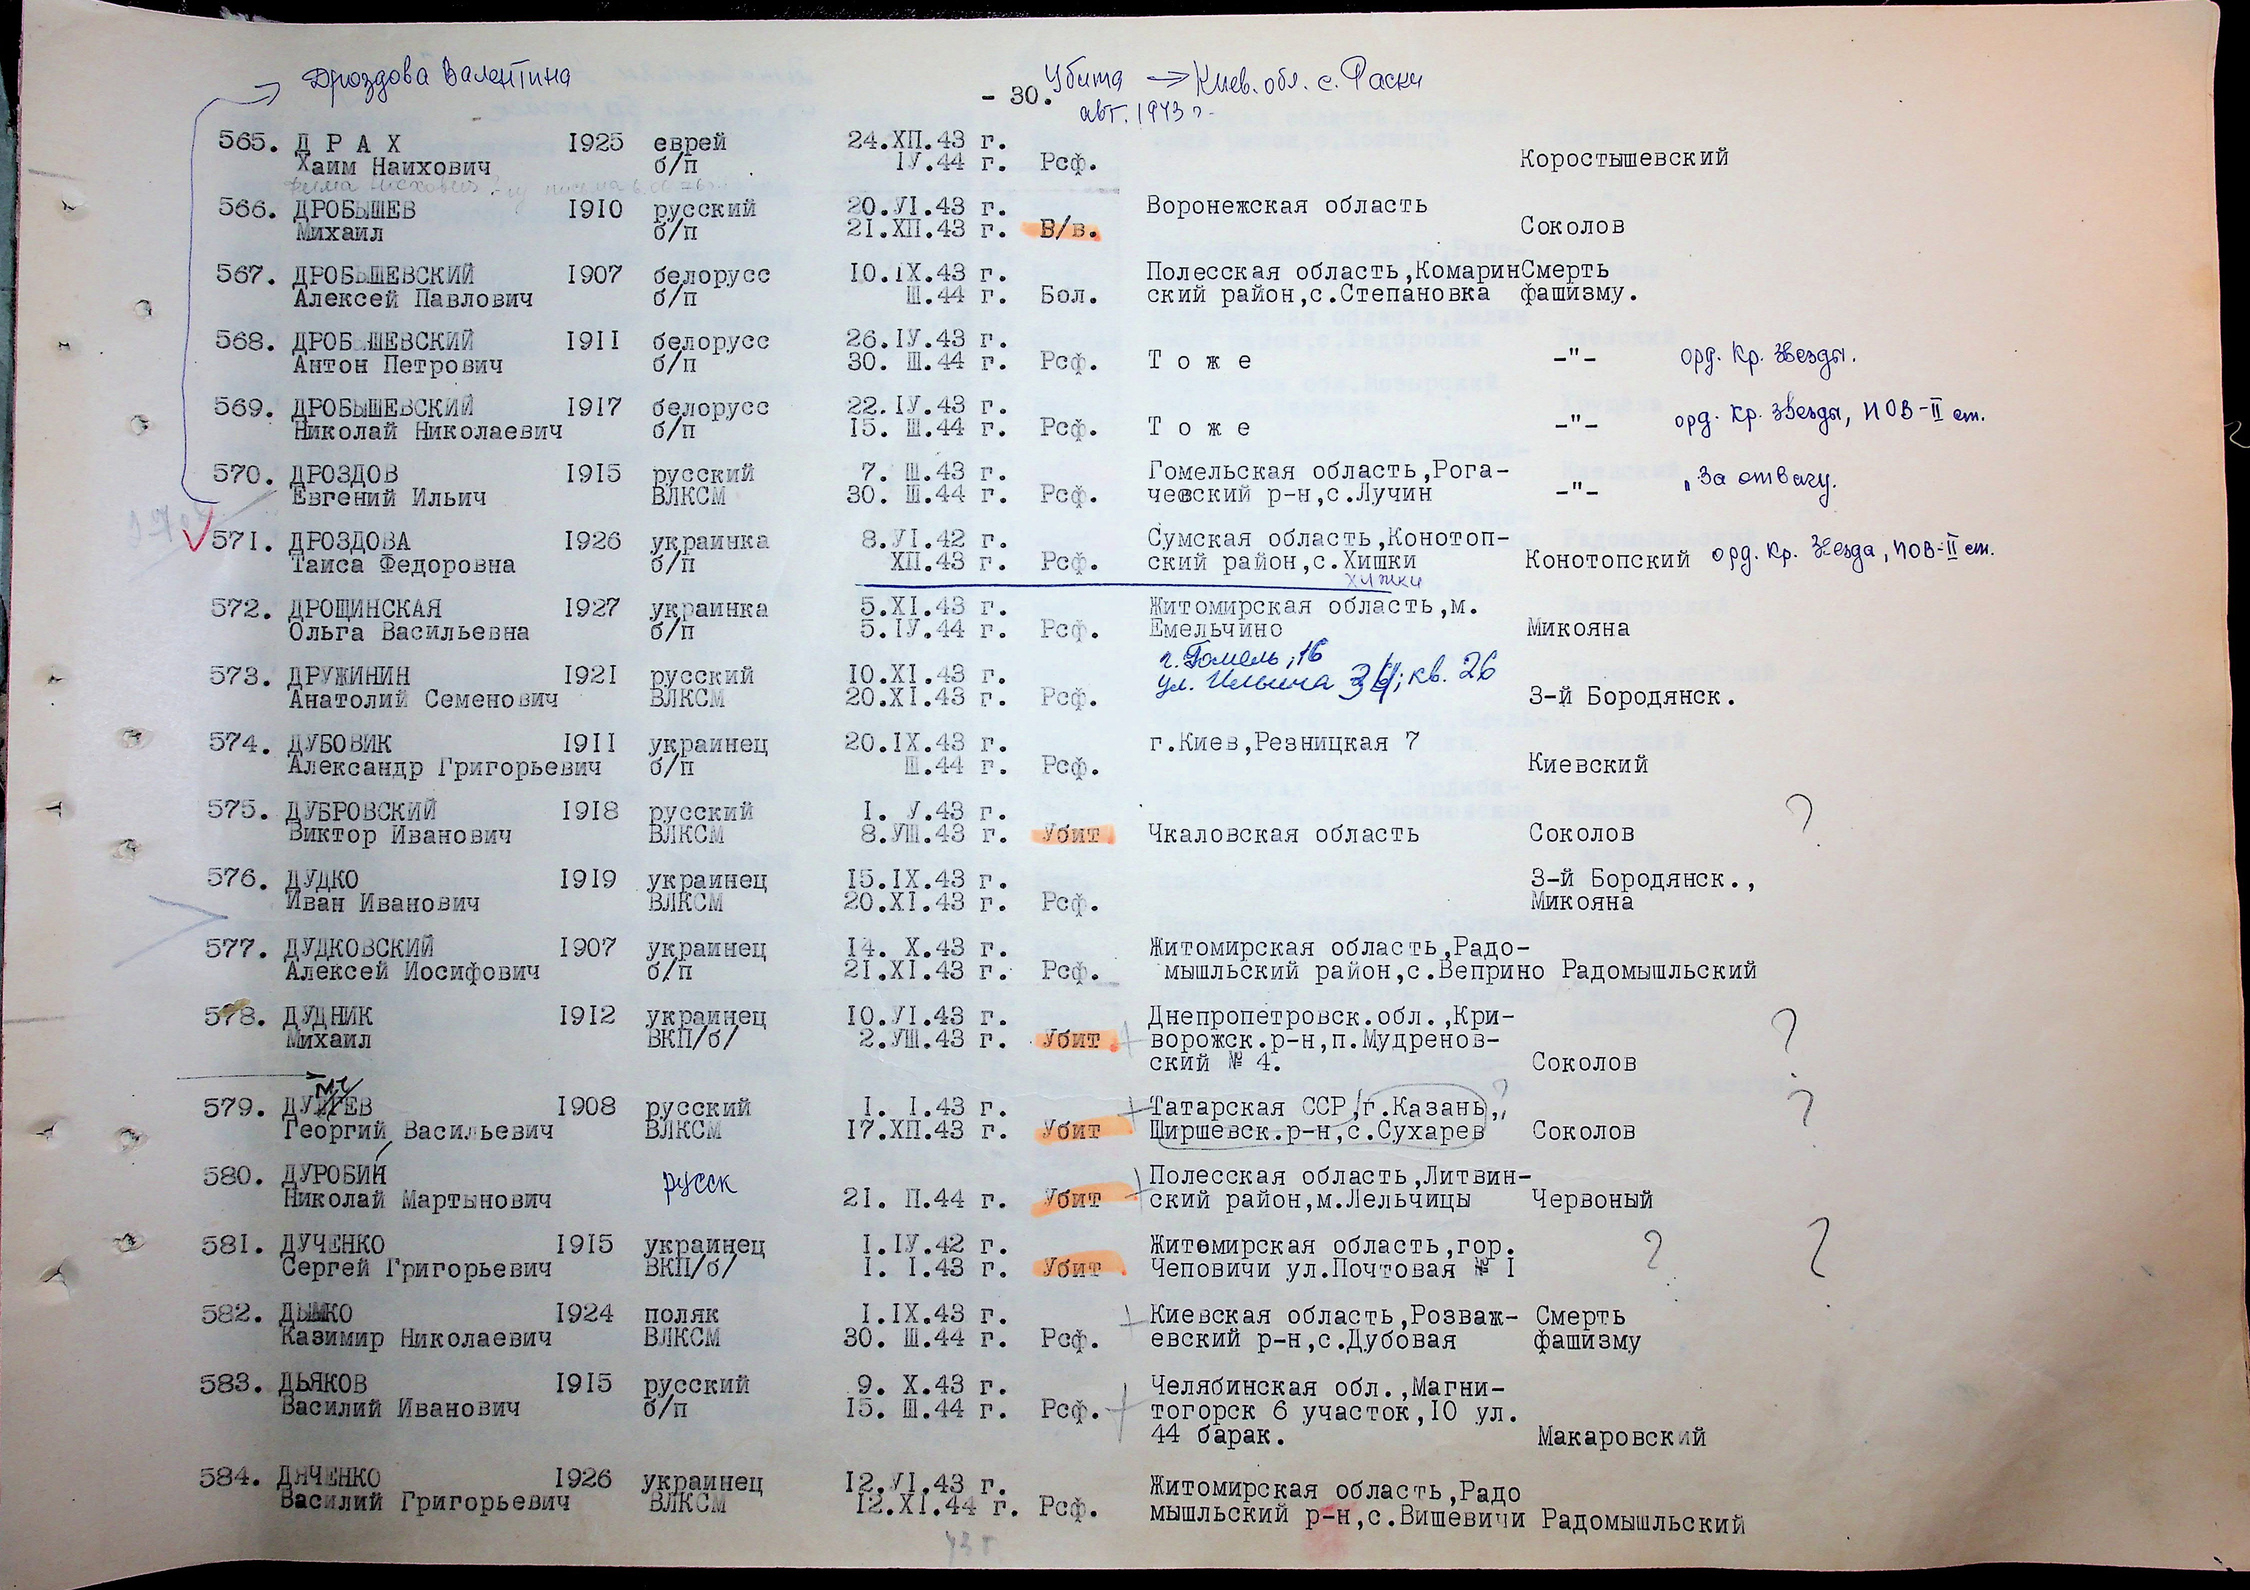 Дроздова Валентина
Убита → Киев. обл. с. Раски
- 30.
авг. 1943 г.
565. Д Р А Х 1925 еврей 24.ХП.43 г.
Хаим Наихович б/п IУ.44 г. Рсф. Коростышевский
566. ДРОБЫШЕВ 1910 русский 20.УI.43 г. Воронежская область
Михаил б/п 21.ХП.43 г. В/в. Соколов
567. ДРОБЫШЕВСКИЙ 1907 белорусс 10.IХ.43 г. Полесская область,Комарин Смерть
Алексей Павлович б/п Ш.44 г. Бол. ский район,с.Степановка фашизму.
568. ДРОБЫШЕВСКИЙ 1911 белорусс 26.IУ.43 г.
Антон Петрович б/п 30. Ш.44 г. Рсф. Т о ж е -"- орд. Кр. Звезды.
569. ДРОБЫШЕВСКИЙ 1917 белорусс 22.IУ.43 г.
Николай Николаевич б/п 15. Ш.44 г. Рсф. Т о ж е -"- орд. Кр. Звезды, ПОВ-II ст.
570. ДРОЗДОВ 1915 русский 7. Ш.43 г. Гомельская область,Рога-
Евгений Ильич ВЛКСМ 30. Ш.44 г. Рсф. чевский р-н,с.Лучин -"- "За отвагу.
571. ДРОЗДОВА 1926 украинка 8.УI.42 г. Сумская область,Конотоп-
Таиса Федоровна б/п ХП.43 г. Рсф. ский район,с.Хишки Конотопский орд. Кр. Звезда, ПОВ-II ст.
Хижки
572. ДРОЩИНСКАЯ 1927 украинка 5.ХI.43 г. Житомирская область,м.
Ольга Васильевна б/п 5.IУ.44 г. Рсф. Емельчино Микояна
г. Гомель, 16
573. ДРУЖИНИН 1921 русский 10.ХI.43 г. ул. Ильича кв. 26
Анатолий Семенович ВЛКСМ 20.ХI.43 г. Рсф. 3-й Бородянск.
574. ДУБОВИК 1911 украинец 20.IХ.43 г. г.Киев,Резницкая 7
Александр Григорьевич б/п Ш.44 г. Рсф. Киевский
575. ДУБРОВСКИЙ 1918 русский I. У.43 г. ?
Виктор Иванович ВЛКСМ 8.УШ.43 г. Убит Чкаловская область Соколов
576. ДУДКО 1919 украинец 15.IХ.43 г. 3-й Бородянск.,
Иван Иванович ВЛКСМ 20.ХI.43 г. Рсф. Микояна
577. ДУДКОВСКИЙ 1907 украинец 14. Х.43 г. Житомирская область,Радо-
Алексей Иосифович б/п 21.ХI.43 г. Рсф. мышльский район,с.Веприно Радомышльский
578. ДУДНИК 1912 украинец 10.УI.43 г. Днепропетровск.обл.,Кри- ?
Михаил ВКП/б/ 2.УШ.43 г. Убит ворожск.р-н,п.Мудренов-
ский № 4. Соколов
579. 1908 русский I. I.43 г. Татарская ССР,г.Казань, ? ?
Георгий Васильевич ВЛКСМ 17.ХП.43 г. Убит Ширшевск.р-н,с.Сухарев Соколов
580. ДУРОБИН русск Полесская область,Литвин-
Николай Мартынович 21. П.44 г. Убит ский район,м.Лельчицы Червоный
581. ДУЧЕНКО 1915 украинец I.IУ.42 г. Житомирская область,гор. ? ?
Сергей Григорьевич ВКП/б/ I. I.43 г. Убит Чеповичи ул.Почтовая № I
582. ДЫМКО 1924 поляк I.IХ.43 г. Киевская область,Розваж- Смерть
Казимир Николаевич ВЛКСМ 30. Ш.44 г. Рсф. евский р-н,с.Дубовая фашизму
583. ДЬЯКОВ 1915 русский 9. Х.43 г. Челябинская обл.,Магни-
Василий Иванович б/п 15. Ш.44 г. Рсф. тогорск 6 участок,10 ул.
44 барак. Макаровский
584. ДЯЧЕНКО 1926 украинец 12.УI.43 г. Житомирская область,Радо
Василий Григорьевич ВЛКСМ 12.ХI.44 г. Рсф. мышльский р-н,с.Вишевичи Радомышльский
43 г.